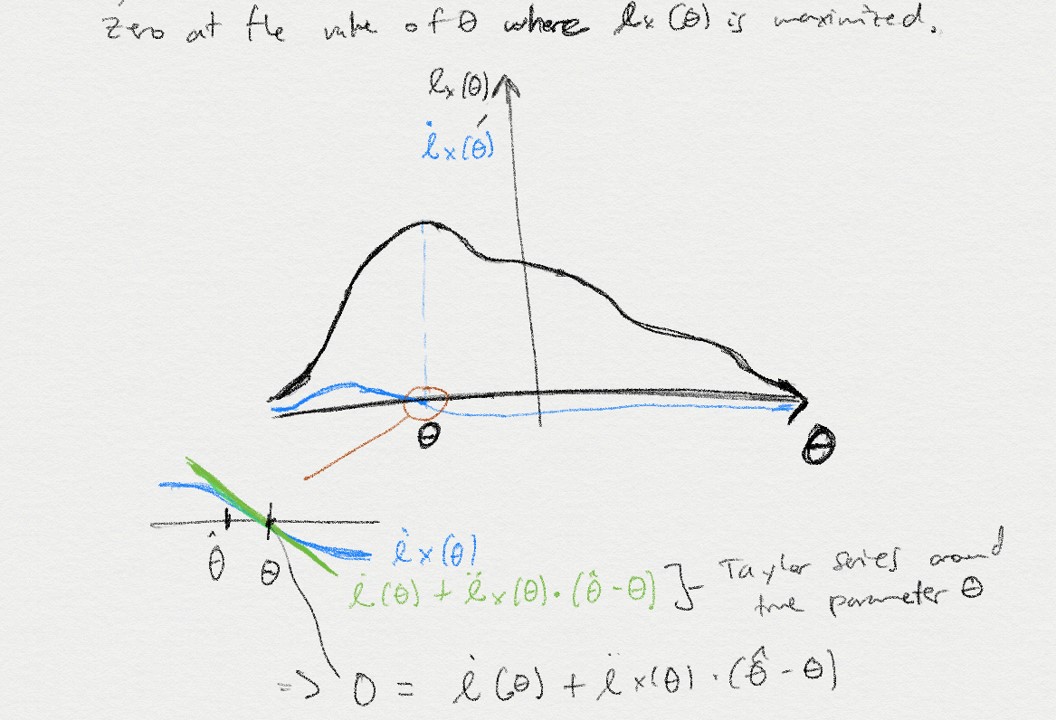 zero at the value of θ where ℓx(θ) is maximized.
ℓx(θ)
ℓ̇x(θ)
θ
θ
θ̂
θ
ℓ̇x(θ)
ℓ̇(θ) + ℓ̈x(θ)·(θ̂-θ)] Taylor series around
true parameter θ
=> 0 = ℓ̇(θ) + ℓ̈x(θ)·(θ̂-θ)